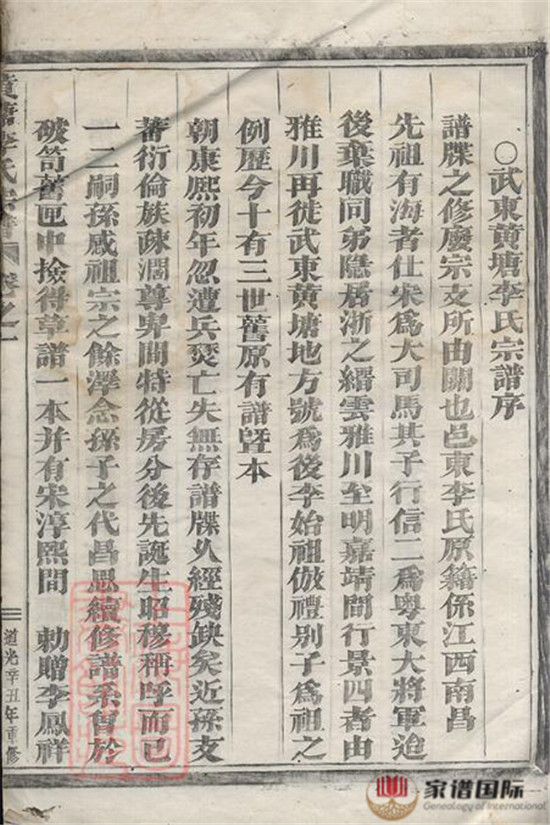 〇武東黄塘李氏宗譜序
譜牒之修慶宗支所由關也邑東李氏原籍係江西南昌
先祖有海者仕宋爲大司馬其子行信二爲粤東大將軍迨
後棄職同弟隱居浙之縉雲雅川至明嘉靖間行景四者由
雅川再徙武東黄塘地方號爲後李始祖倣禮别子爲祖之
例歷今十有三世舊原有譜暨本
朝康熙初年忽遭兵燹亡失無存譜牒乆經殘缺矣近孫支
蕃衍倫族疎濶尊卑間特從房分後先誕生昭穆稱呼而已
一二嗣孫感祖宗之餘澤念孫子之代昌思續修譜系曾於
破笥舊匣中撿得草譜一本并有宋淳熙間　勅贈李鳳祥
黄塘李氏宗譜
卷之一
道光辛丑年重修
家谱国际
Genealogy of International